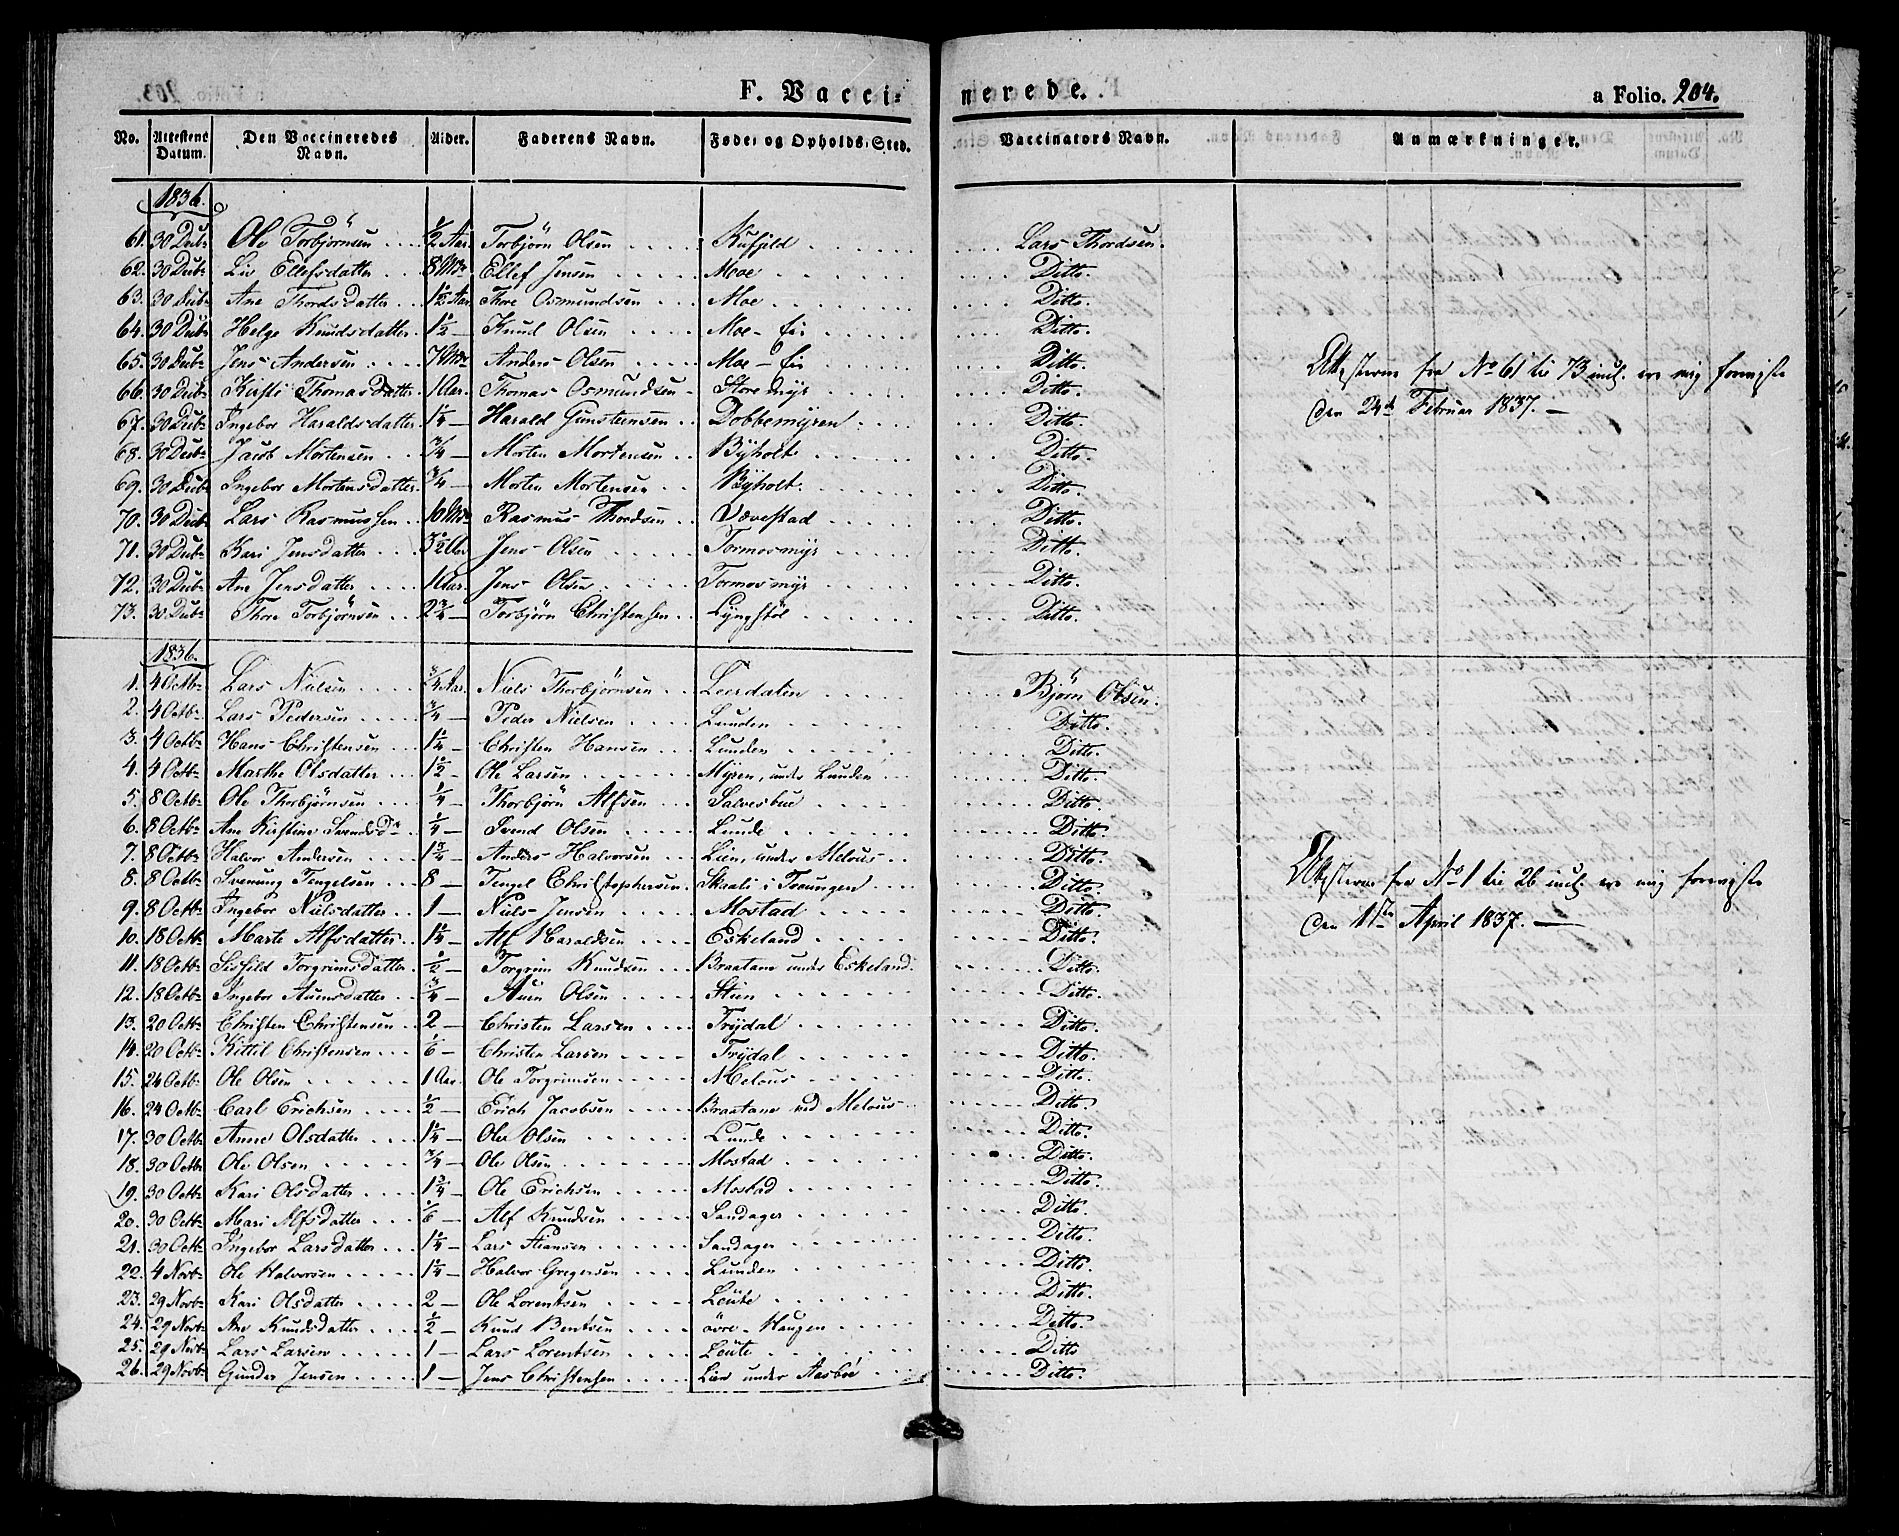 F. Vacci-
nerede.
a Folio. 204.
No. Attestens Datum. Den Vaccineredes Navn. Alder. Faderens Navn. Føde- og Opholds-Sted. Vaccinators Navn. Anmærkninger.
1836.
61. 30 Ole Torbjörnsen 1/2 Aar. Torbjörn Olsen Lars Thordsen.
62. 30 Liv Ellefsdatter 8 Ellef Jensen Moe Ditto.
63. 30 Ane Thordsdatter 1 1/2 Aar Thore Osmundsen Moe Ditto.
64. 30 Helge Knudsdatter 1 1/2 — Knud Olsen Moe - Eir Ditto.
65. 30 Jens Andersen 7 Anders Olsen Moe - Eir Ditto.
66. 30 Kirsti Thomasdatter 1 Aar. Thomas Osmundsen Storemyr Ditto.
67. 30 Ingebor Haraldsdatter 1 1/4 — Harald Gunstensen Dobbemyren Ditto.
68. 30 Jacob Mortensen 3/4 — Morten Mortensen Byholt Ditto.
69. 30 Ingebor Mortensdatter 3/4 — Morten Mortensen Byholt Ditto.
70. 30 Lars Rasmussen 10 Rasmus Thordsen Vævestad Ditto.
71. 30 Kari Jensdatter 3 1/2 Aar Jens Olsen Tormosmyr Ditto.
72. 30 Ane Jensdatter 1 Aar. Jens Olsen Tormosmyr Ditto.
73. 30 Thore Torbjörnsen 2 3/4 — Torbjörn Christensen Lyngstøl Ditto.
Attesterne fra No 61 til 73 incl. ere mig foreviste
den 24de Februar 1837. —
1836.
1. 4 Octb. Lars Nielsen 3/4 Aar. Niels Thorbjörnsen Leerdalen Björn Olsen.
2. 4 Octb. Lars Pedersen 3/4 — Peder Nielsen Lunden Ditto.
3. 4 Octb. Hans Christensen 1 1/4 — Christen Hansen Lunden Ditto.
4. 4 Octb. Marthe Olsdatter 1 1/2 — Ole Larsen Myren, under Lunden Ditto.
5. 8 Octb. Ole Thorbjörnsen 1/4 — Thorbjörn Alfsen Salvesbue Ditto.
6. 8 Octb. Ane Kirstine Svendsdr. 1/4 — Svend Olsen Lunde Ditto.
7. 8 Octb. Halvor Andersen 1 3/4 — Anders Halvorsen Lien, under Melous Ditto.
8. 8 Octb. Svenung Tengelsen 8 — Tengel Christophersen Skaali i Troungen Ditto.
9. 8 Octb. Ingebor Nielsdatter 1 — Niels Jensen Mostad Ditto.
10. 18 Octb. Marte Alfsdatter 1 1/4 — Alf Haraldsen Eskeland Ditto.
11. 18 Octb. Torgrimsdatter 1/2 — Torgrim Knudsen Braatane under Eskeland. Ditto.
12. 18 Octb. Ingebor Auensdatter 3/4 — Auen Olsen Stien Ditto.
13. 20 Octb. Christen Christensen 2 — Christen Larsen Trydal Ditto.
14. 20 Octb. Kittil Christensen 1/6 — Christen Larsen Trydal Ditto.
15. 24 Octb. Ole Olsen 1 Aar. Ole Torgrimsen Melous Ditto.
16. 24 Octb. Carl Erichsen 1/2 — Erich Jacobsen Braatane ved Melous Ditto.
17. 30 Octb. Anne Olsdatter 1 1/4 — Ole Olsen Lunde Ditto.
18. 30 Octb. Ole Olsen 3/4 — Ole Olsen Mostad Ditto.
19. 30 Octb. Kari Olsdatter 1 3/4 — Ole Erichsen Mostad Ditto.
20. 30 Octb. Mari Alfsdatter 1/6 — Alf Knudsen Sandager Ditto.
21. 30 Octb. Ingebor Larsdatter 1 1/4 — Lars Stiansen Sandager Ditto.
22. 4 Novb. Ole Halvorsen 1 1/4 — Halvor Gregersen Lunden Ditto.
23. 29 Novb. Kari Olsdatter 2 — Ole Lorentsen Leute Ditto.
24. 29 Novb. Ane Knudsdatter 1/2 — Knud Bentsen övre - Haugen Ditto.
25. 29 Novb. Lars Larsen 1 — Lars Lorentsen Leute Ditto
26. 29 Novb. Gunder Jensen 1 — Jens Christensen Lien under Aasböe Ditto.
Attesterne fra No 1 til 26 incl. ere mig foreviste
den April 1837. —